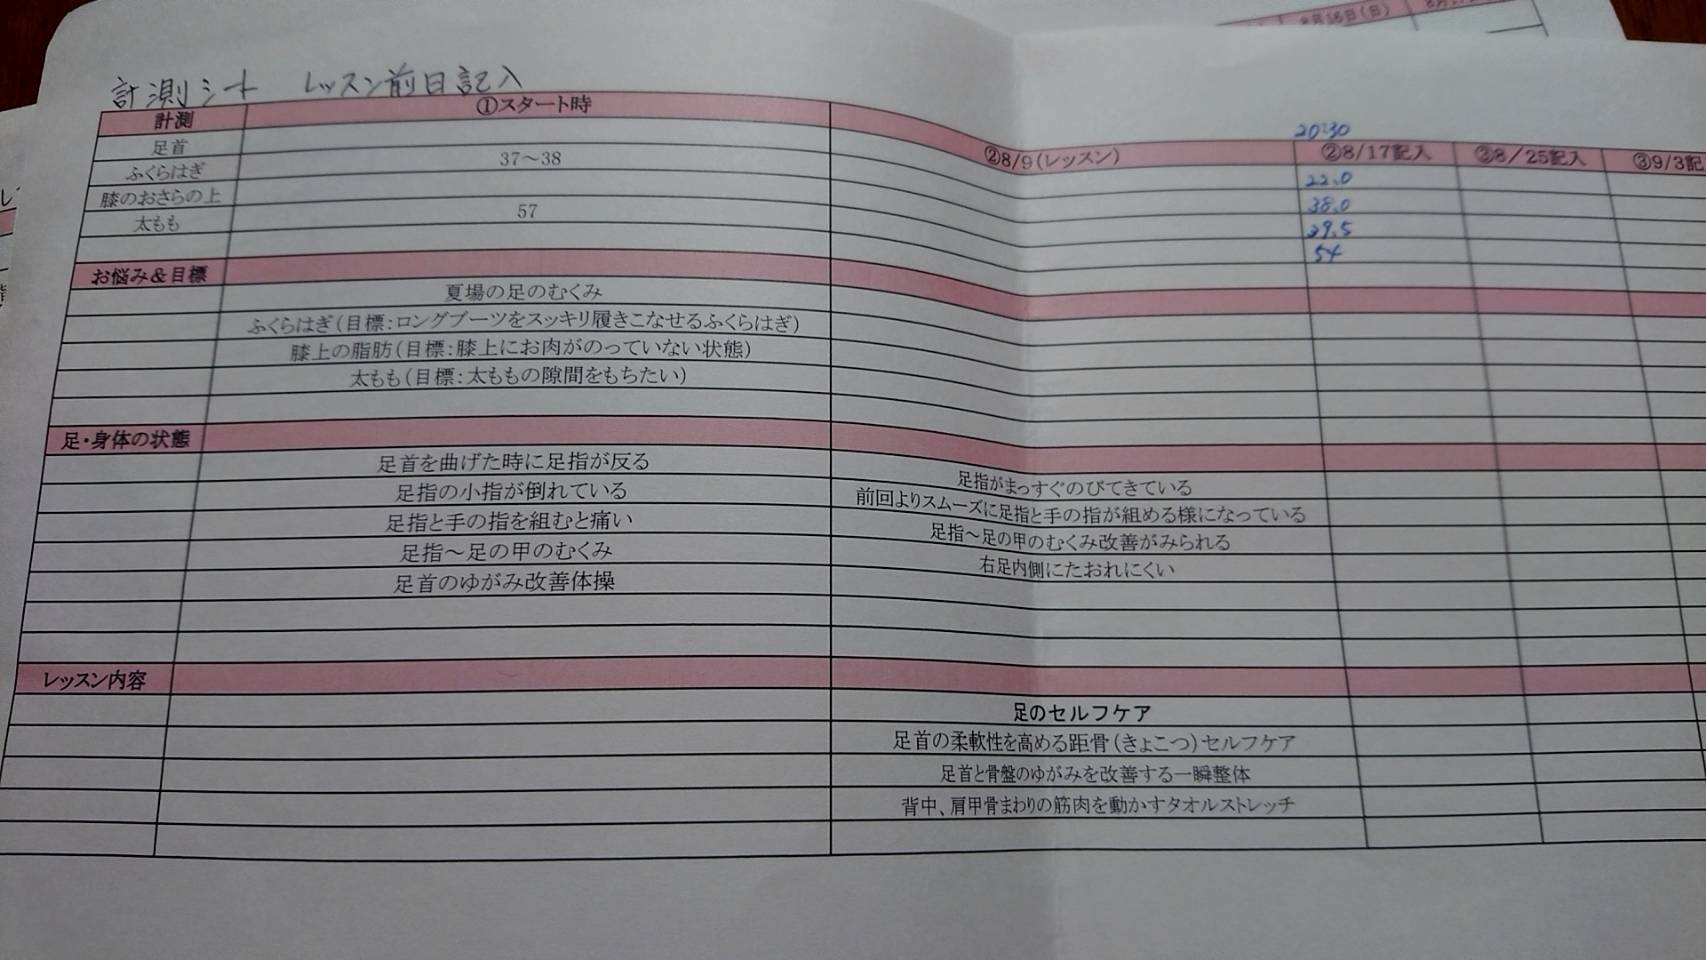 8月16日(日)
計測シート レッスン前日記入
計測 ①スタート時 ②8/9(レッスン) 20:30 ②8/17記入 ②8/25記入 ③9/3記
足首 22.0
ふくらはぎ 37~38 38.0
膝のおさらの上 39.5
太もも 57 54
お悩み&目標
夏場の足のむくみ
ふくらはぎ(目標:ロングブーツをスッキリ履きこなせるふくらはぎ)
膝上の脂肪(目標:膝上にお肉がのっていない状態)
太もも(目標:太ももの隙間をもちたい)
足・身体の状態
足首を曲げた時に足指が反る 足指がまっすぐのびてきている
足指の小指が倒れている 前回よりスムーズに足指と手の指が組める様になっている
足指と手の指を組むと痛い 足指~足の甲のむくみ改善がみられる
足指~足の甲のむくみ 右足内側にたおれにくい
足首のゆがみ改善体操
レッスン内容
足のセルフケア
足首の柔軟性を高める距骨(きょこつ)セルフケア
足首と骨盤のゆがみを改善する一瞬整体
背中、肩甲骨まわりの筋肉を動かすタオルストレッチ